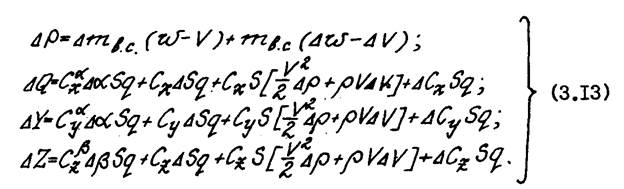 ΔP=Δm_{в.с.}(w-V)+m_{в.с}(Δw-ΔV);
ΔQ=C_x^α ΔαSq+C_xΔSq+C_xS[V²/2 Δρ+ρVΔV]+ΔC_xSq;
ΔY=C_y^α ΔαSq+C_yΔSq+C_yS[V²/2 Δρ+ρVΔV]+ΔC_ySq;
ΔZ=C_z^β ΔβSq+C_zΔSq+C_zS[V²/2 Δρ+ρVΔV]+ΔC_zSq.
(3.I3)